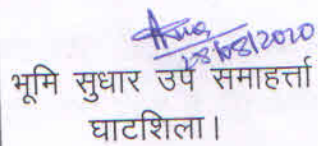 28/08/2020
भूमि सुधार उप समाहर्त्ता
घाटशिला।